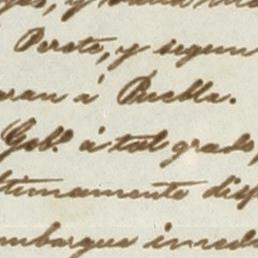 Perote, y segun
aran á Puebla.
Gob.º á tal grado,
ltimamente disp
mbargue inmedi